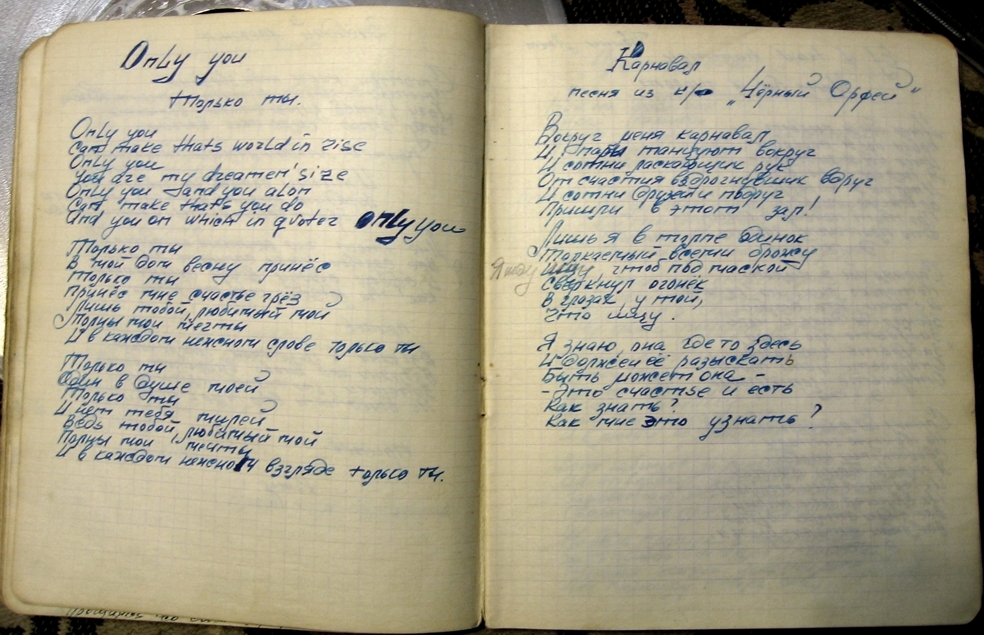 Only you
Только ты.
Only you
Can make thats world in rise
Only you
You are my dreamen' size
Only you and you alon
Can make that's you do
And you on which in quotez only you
Только ты
В мой дом весну принёс
Только ты
Принёс мне счастье грёз
Лишь тобой, любимый мой
Полны мои мечты
И в каждом нежном слове только ты
Только ты
Один в душе моей
Только ты
И нет тебя милей
Ведь тобой, любимый мой
Полны мои мечты
И в каждом нежном взгляде только ты.
Карнавал
песня из к/ф „Чёрный Орфей"
Вокруг меня карнавал
И пары танцуют вокруг
И сотни рук
От счастья вздрогнувших вдруг
И сотни подруг
Пришли в этот зал!
Лишь я в толпе одинок
Толкаемый всеми брожу
Я ищу чтоб под маской
Сверкнул огонёк
В глазах у той,
Что ищу.
Я знаю, она где то здесь
И должен её разыскать
Быть может она -
- Это счастье и есть
Как знать?
Как мне это узнать?